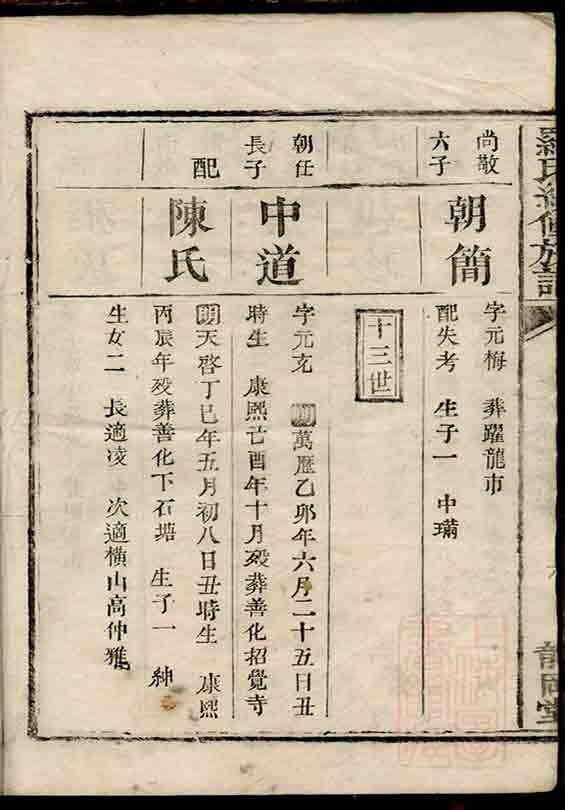 羅氏續修族譜
龍岡堂
尚敬
六子
朝簡
字元梅 葬躍龍市
配失考 生子一 中璊
十三世
朝任
長子
中道
字元𠫵 明萬歷乙卯年六月二十五日丑
時生 康熙己酉年十月歿葬善化招覺寺
配
陳氏
明天啓丁巳年五月初八日丑時生 康熙
丙辰年歿葬善化下石塘 生子一 紳
生女二 長適凌 次適橫山高仲雅